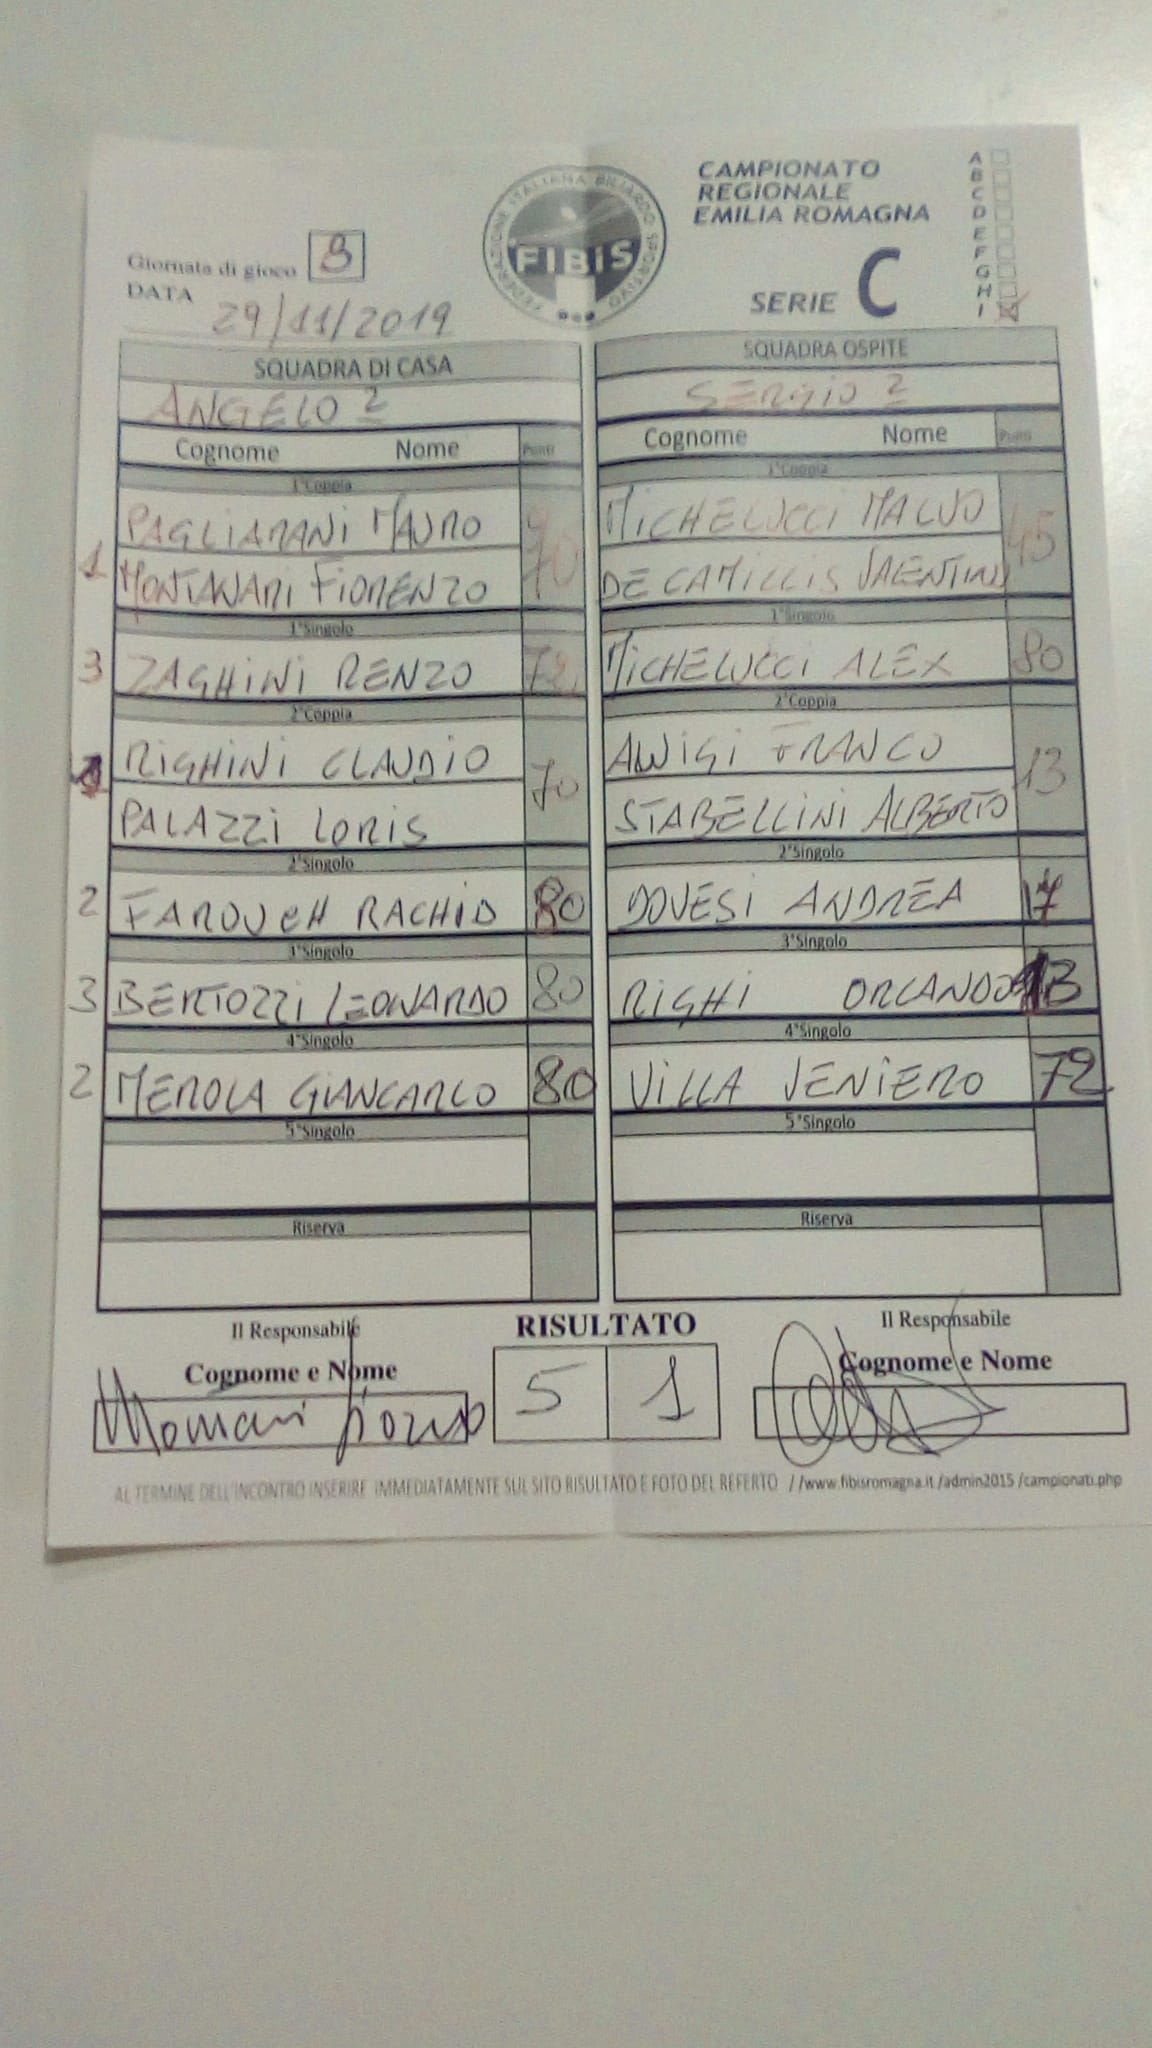 FEDERAZIONE ITALIANA BILIARDO SPORTIVO
FIBiS
CAMPIONATO
REGIONALE
EMILIA ROMAGNA
SERIE C
A
B
C
D
E
F
G
H
I
Giornata di gioco
DATA
29/11/2019
SQUADRA DI CASA SQUADRA OSPITE
ANGELO 2 SERGIO 2
Cognome Nome Punti Cognome Nome Punti
1°Coppia 1°Coppia
PAGLIARANI MAURO MICHELUCCI
1 MONTANARI FIORENZO 70 DE CAMILLIS VALENTINO 45
1°Singolo 1°Singolo
3 ZAGHINI RENZO 72 MICHELUCCI ALEX 80
2°Coppia 2°Coppia
RIGHINI CLAUDIO FRANCO
PALAZZI LORIS 70 STABELLINI ALBERTO 13
2°Singolo 2°Singolo
2 FAROUCH RACHID 80 DOVESI ANDREA 17
3°Singolo 3°Singolo
3 BERTOZZI LEONARDO 80 RIGHI ORLANDO
4°Singolo 4°Singolo
2 MEROLA GIANCARLO 80 VILLA VENIERO 72
5°Singolo 5°Singolo
Riserva Riserva
Il Responsabile RISULTATO Il Responsabile
Cognome e Nome 5 1 Cognome e Nome
AL TERMINE DELL'INCONTRO INSERIRE IMMEDIATAMENTE SUL SITO RISULTATO E FOTO DEL REFERTO //www.fibisromagna.it/admin2015/campionati.php